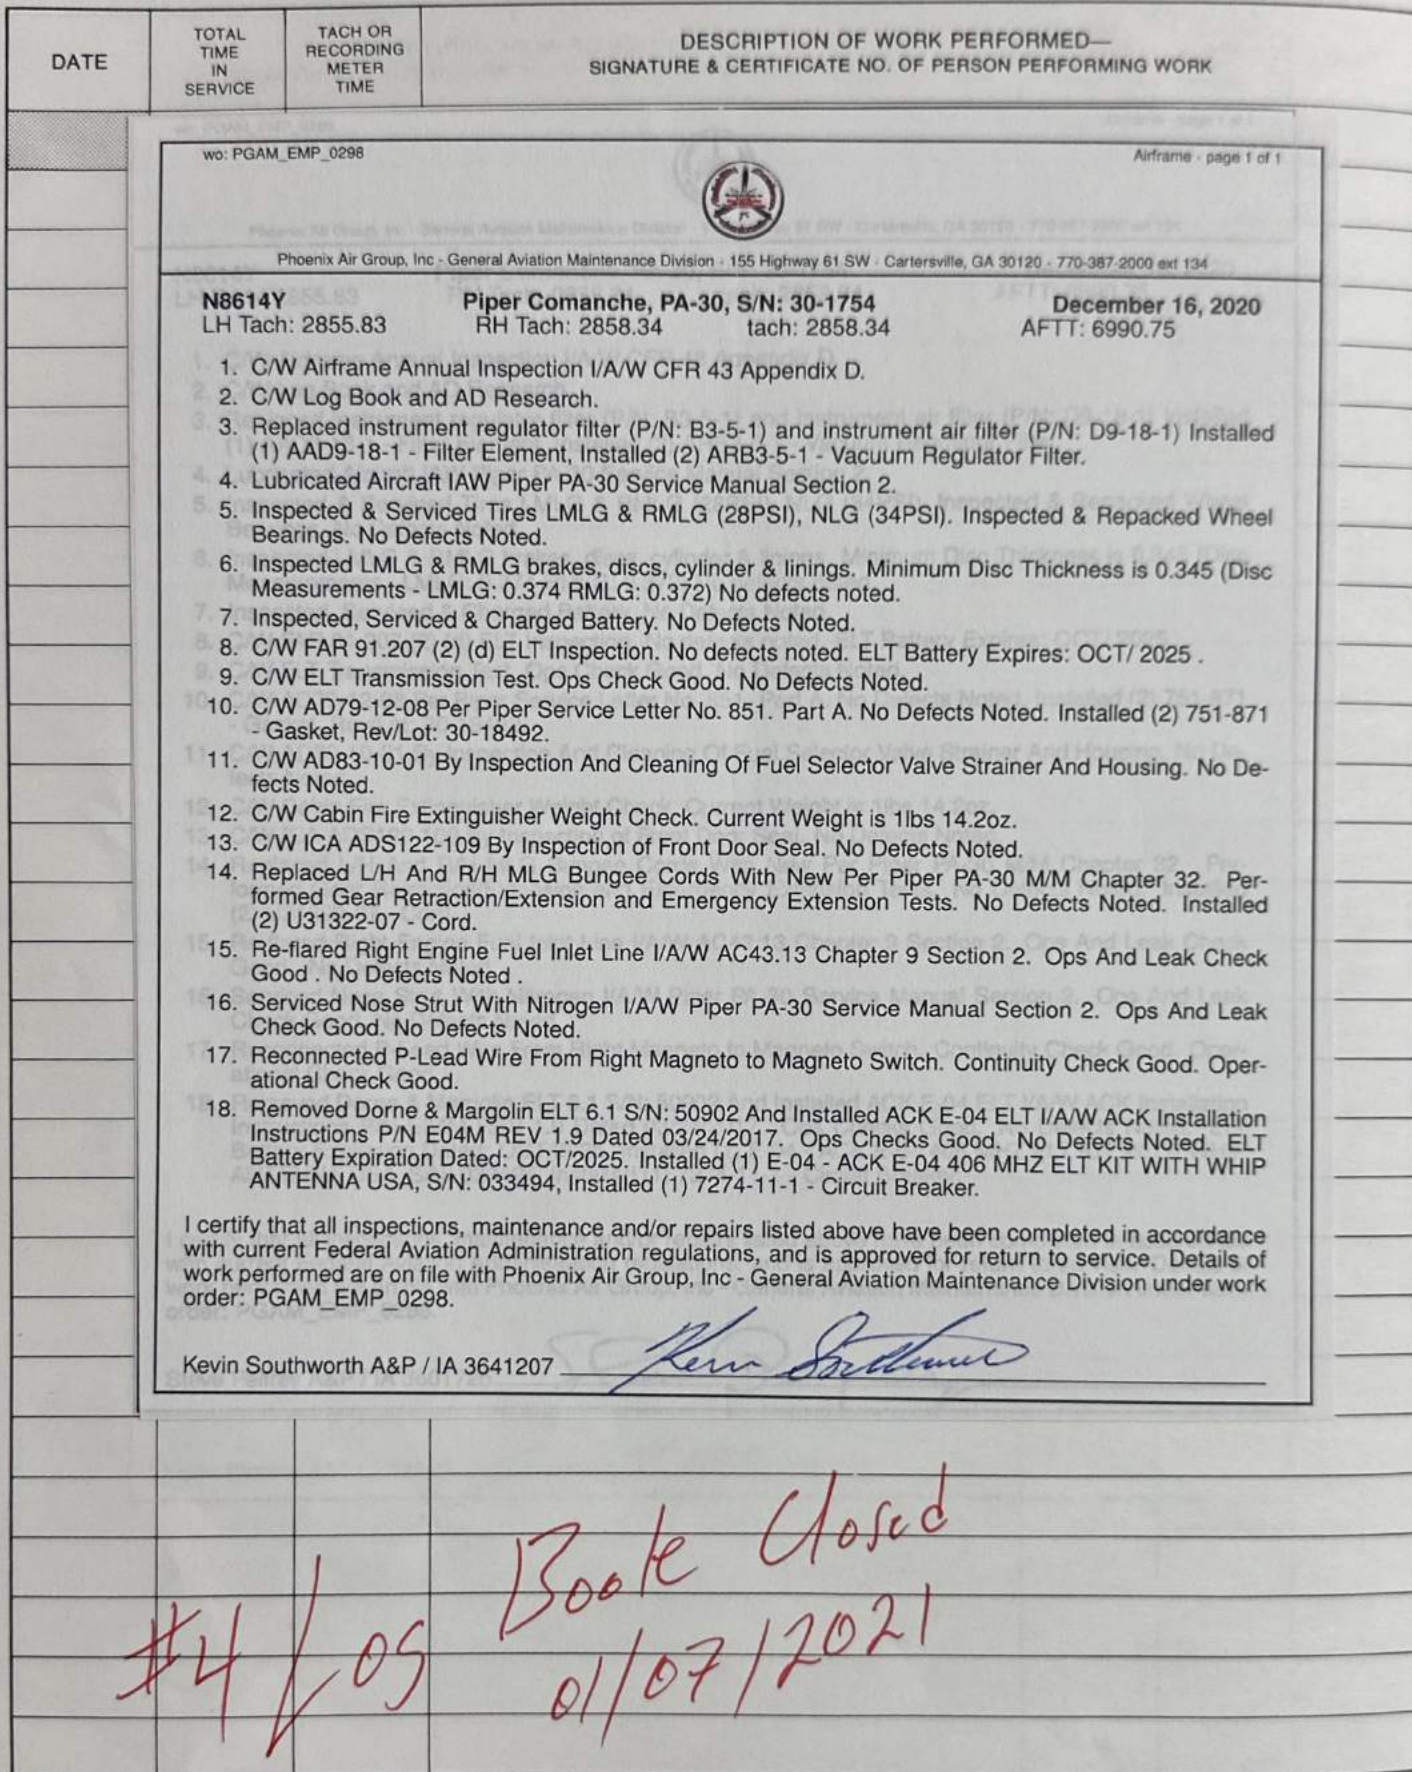 DATE
TOTAL
TIME
IN
SERVICE
TACH OR
RECORDING
METER
TIME
DESCRIPTION OF WORK PERFORMED—
SIGNATURE & CERTIFICATE NO. OF PERSON PERFORMING WORK
wo: PGAM_EMP_0298
Airframe - page 1 of 1
Phoenix Air Group, Inc - General Aviation Maintenance Division - 155 Highway 61 SW - Cartersville, GA 30120 - 770-387-2000 ext 134
N8614Y Piper Comanche, PA-30, S/N: 30-1754 December 16, 2020
LH Tach: 2855.83 RH Tach: 2858.34 tach: 2858.34 AFTT: 6990.75
1. C/W Airframe Annual Inspection I/A/W CFR 43 Appendix D.
2. C/W Log Book and AD Research.
3. Replaced instrument regulator filter (P/N: B3-5-1) and instrument air filter (P/N: D9-18-1) Installed
(1) AAD9-18-1 - Filter Element, Installed (2) ARB3-5-1 - Vacuum Regulator Filter.
4. Lubricated Aircraft IAW Piper PA-30 Service Manual Section 2.
5. Inspected & Serviced Tires LMLG & RMLG (28PSI), NLG (34PSI). Inspected & Repacked Wheel
Bearings. No Defects Noted.
6. Inspected LMLG & RMLG brakes, discs, cylinder & linings. Minimum Disc Thickness is 0.345 (Disc
Measurements - LMLG: 0.374 RMLG: 0.372) No defects noted.
7. Inspected, Serviced & Charged Battery. No Defects Noted.
8. C/W FAR 91.207 (2) (d) ELT Inspection. No defects noted. ELT Battery Expires: OCT/ 2025 .
9. C/W ELT Transmission Test. Ops Check Good. No Defects Noted.
10. C/W AD79-12-08 Per Piper Service Letter No. 851. Part A. No Defects Noted. Installed (2) 751-871
- Gasket, Rev/Lot: 30-18492.
11. C/W AD83-10-01 By Inspection And Cleaning Of Fuel Selector Valve Strainer And Housing. No De-
fects Noted.
12. C/W Cabin Fire Extinguisher Weight Check. Current Weight is 1lbs 14.2oz.
13. C/W ICA ADS122-109 By Inspection of Front Door Seal. No Defects Noted.
14. Replaced L/H And R/H MLG Bungee Cords With New Per Piper PA-30 M/M Chapter 32. Per-
formed Gear Retraction/Extension and Emergency Extension Tests. No Defects Noted. Installed
(2) U31322-07 - Cord.
15. Re-flared Right Engine Fuel Inlet Line I/A/W AC43.13 Chapter 9 Section 2. Ops And Leak Check
Good . No Defects Noted .
16. Serviced Nose Strut With Nitrogen I/A/W Piper PA-30 Service Manual Section 2. Ops And Leak
Check Good. No Defects Noted.
17. Reconnected P-Lead Wire From Right Magneto to Magneto Switch. Continuity Check Good. Oper-
ational Check Good.
18. Removed Dorne & Margolin ELT 6.1 S/N: 50902 And Installed ACK E-04 ELT I/A/W ACK Installation
Instructions P/N E04M REV 1.9 Dated 03/24/2017. Ops Checks Good. No Defects Noted. ELT
Battery Expiration Dated: OCT/2025. Installed (1) E-04 - ACK E-04 406 MHZ ELT KIT WITH WHIP
ANTENNA USA, S/N: 033494, Installed (1) 7274-11-1 - Circuit Breaker.
I certify that all inspections, maintenance and/or repairs listed above have been completed in accordance
with current Federal Aviation Administration regulations, and is approved for return to service. Details of
work performed are on file with Phoenix Air Group, Inc - General Aviation Maintenance Division under work
order: PGAM_EMP_0298.
Kevin Southworth A&P / IA 3641207
#4 Log Book Closed
01/07/2021